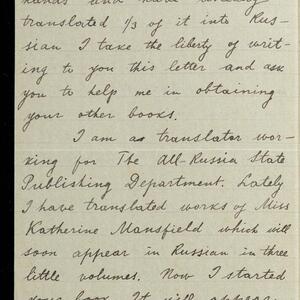 hands and have already
translated 1/3 of it into Rus-
sian I take the liberty of writ-
ing to you this letter and ask
you to help me in obtaining
your other books.
I am as translator wor-
king for The All-Russia State
Publishing Department. Lately
I have translated works of Miss
Katherine Mansfield which will
soon appear in Russian in three
little volumes. Now I started
your book. It will appear